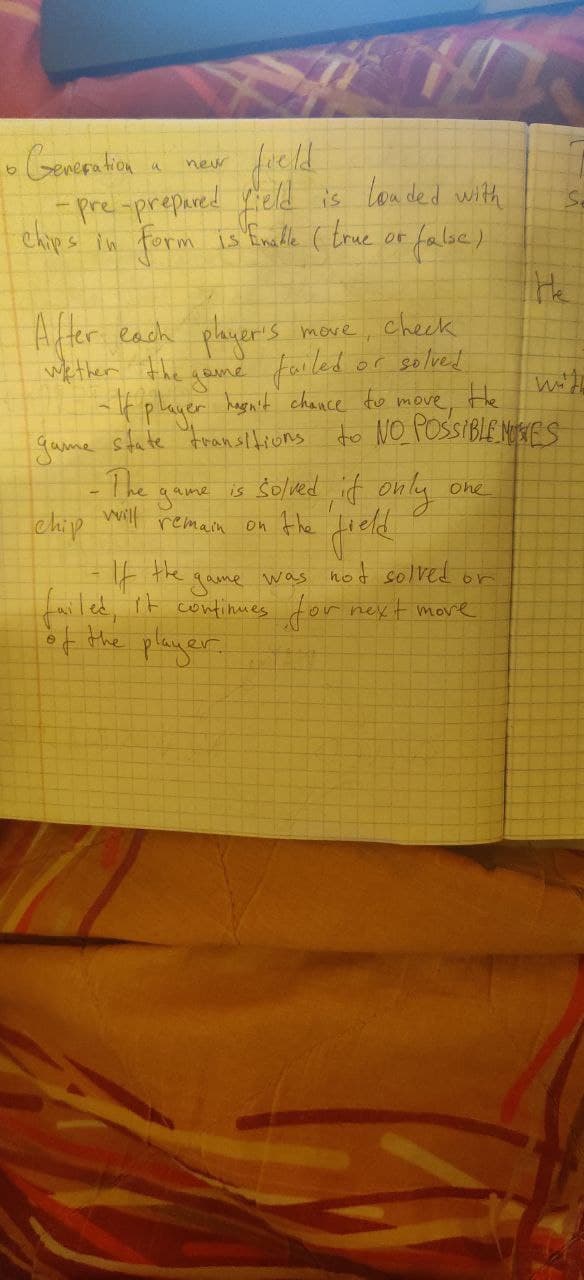 o Generation a new field
- pre-prepared field is loaded with
chips in form isEnable (true or false)
After each player's move, check
whether the game failed or solved
- If player hasn't chance to move, the
game state transitions to NO_POSSIBLE_MOVES
- The game is solved, if only one
chip will remain on the field
- If the game was not solved or
failed, it continues for next move
of the player.
He
with